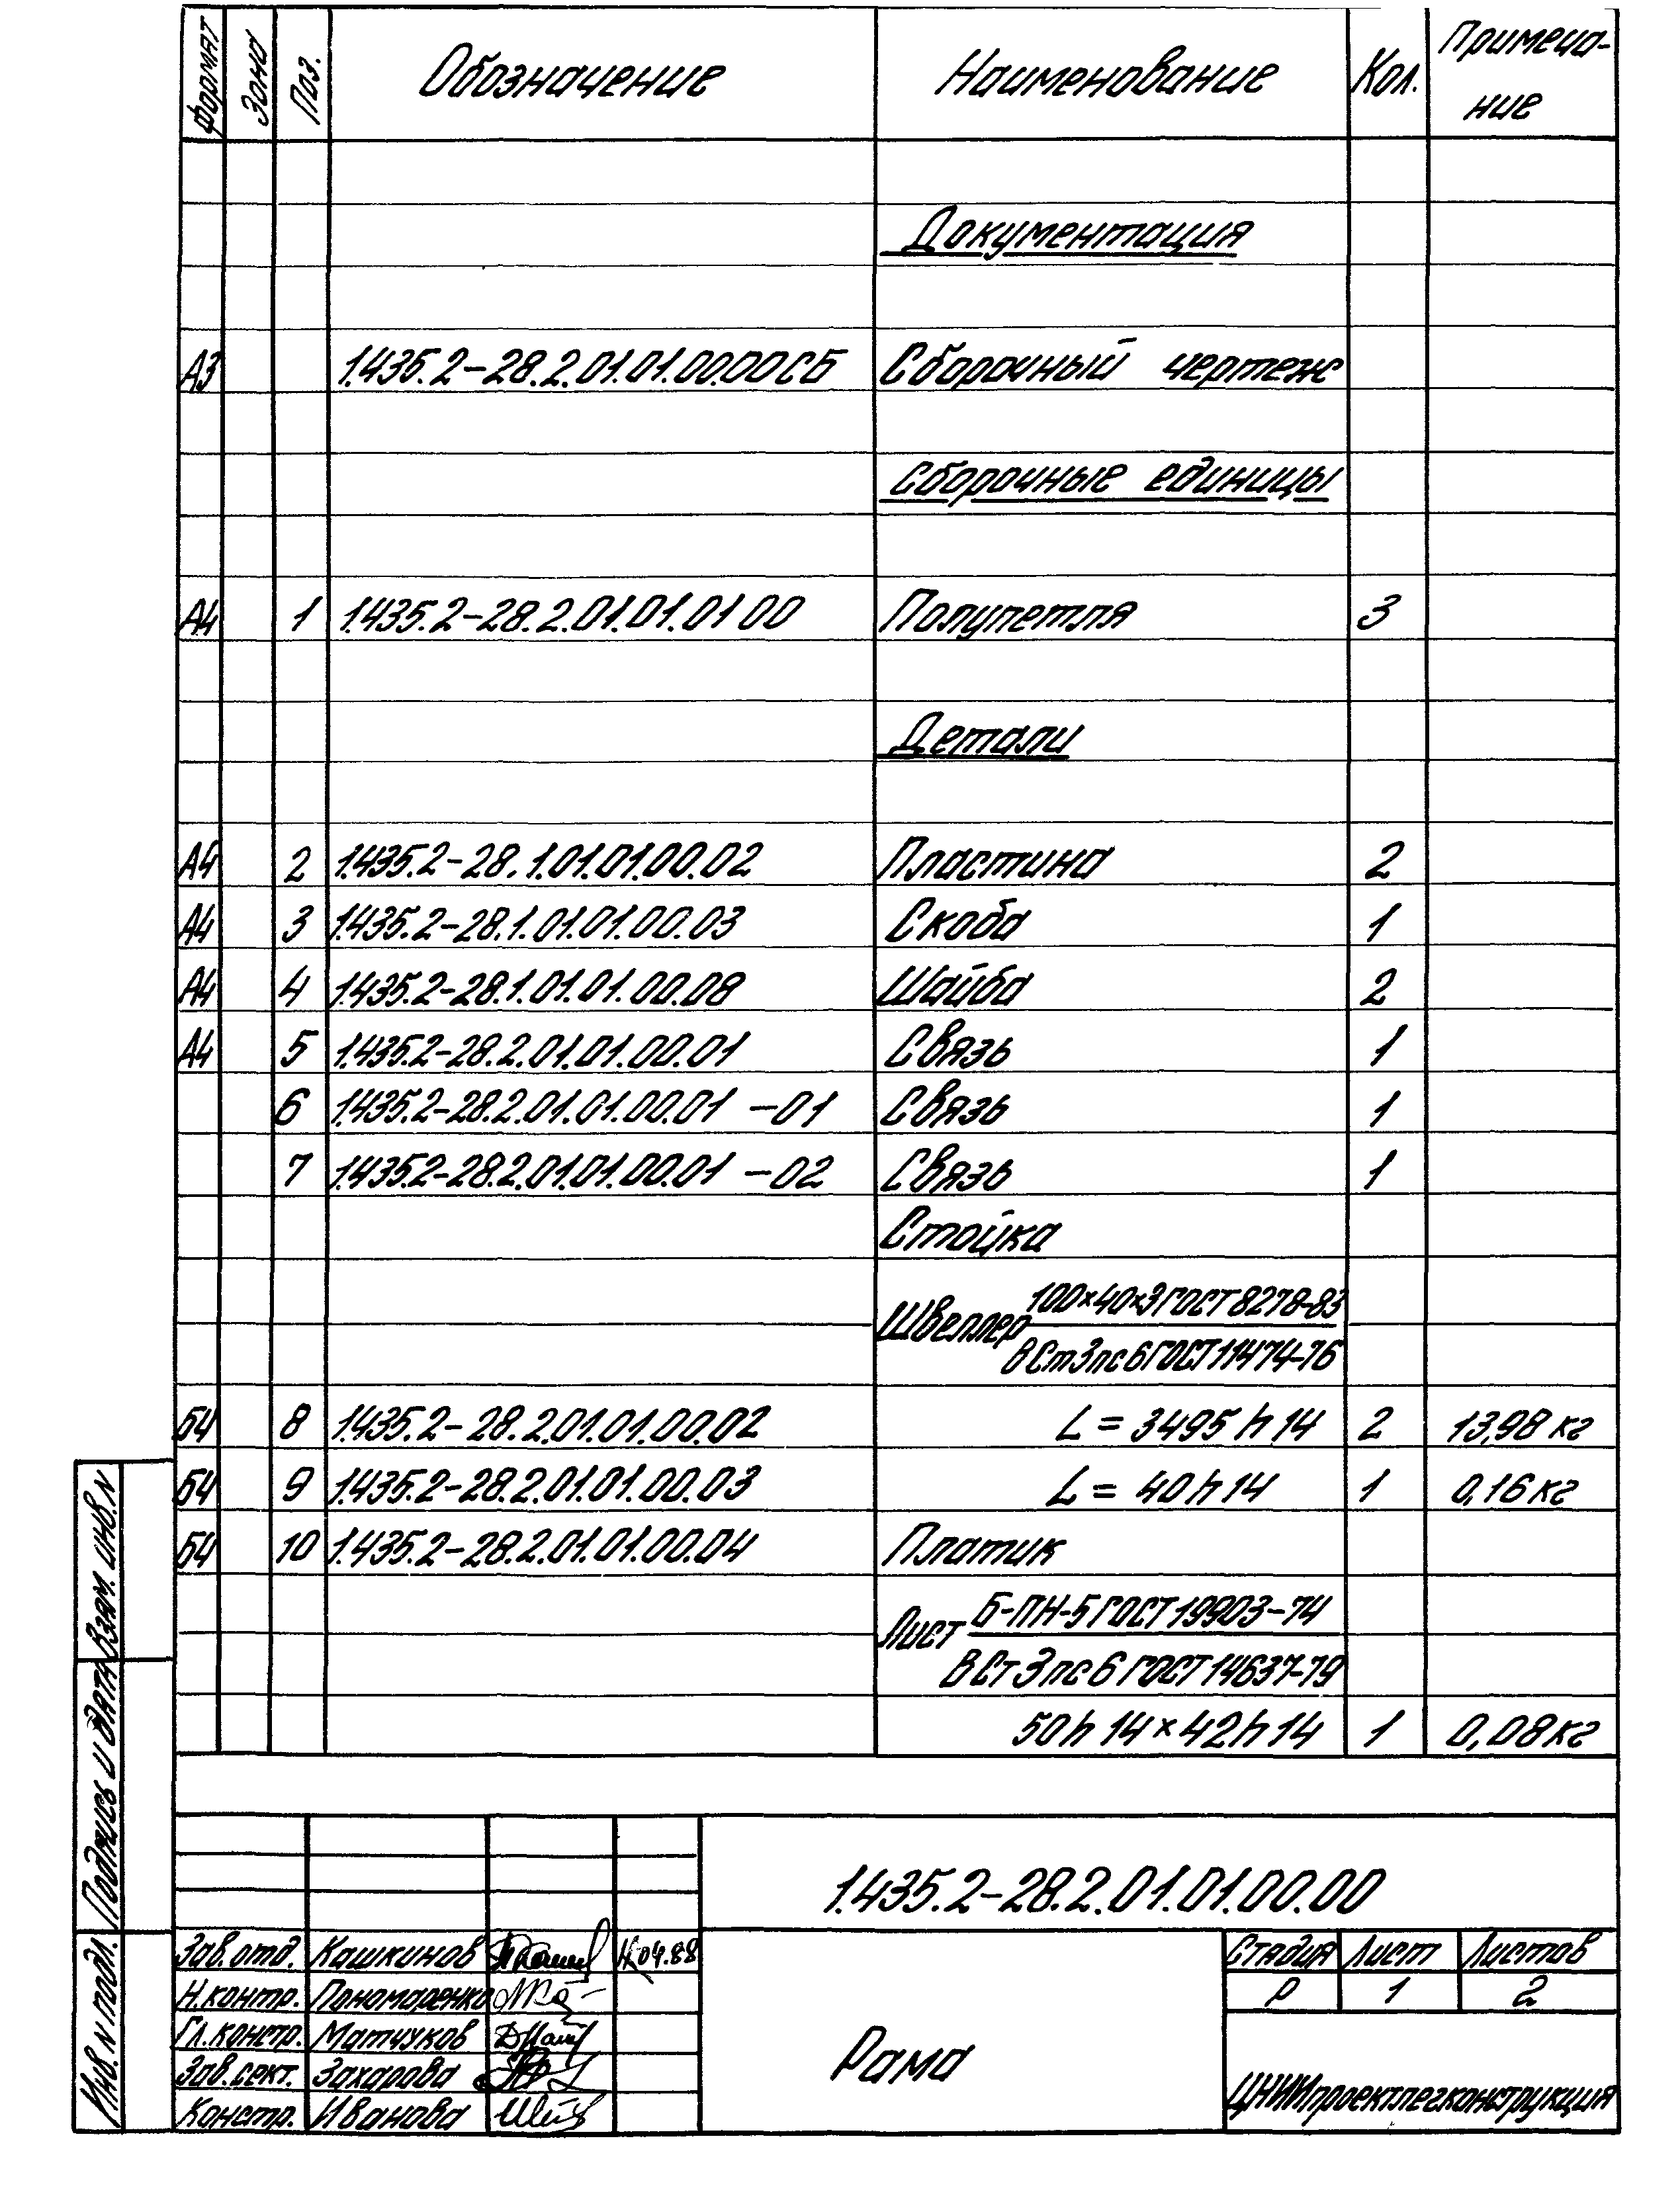 Формат Зона Поз. Обозначение Наименование Кол. Примеча-
ние
Документация
А3 1.435.2-28.2.01.01.00.00СБ Сборочный чертеж
Сборочные единицы
А4 1 1.435.2-28.2.01.01.01 00 Полупетля 3
Детали
А4 2 1.435.2-28.1.01.01.00.02 Пластина 2
А4 3 1.435.2-28.1.01.01.00.03 Скоба 1
А4 4 1.435.2-28.1.01.01.00.08 Шайба 2
А4 5 1.435.2-28.2.01.01.00.01 Связь 1
6 1.435.2-28.2.01.01.00.01 -01 Связь 1
7 1.435.2-28.2.01.01.00.01 -02 Связь 1
Стойка
Швеллер 100×40×3 ГОСТ 8278-83
ВСт3пс6 ГОСТ 11474-76
Б4 8 1.435.2-28.2.01.01.00.02 L = 3495 h 14 2 13,98 кг
Б4 9 1.435.2-28.2.01.01.00.03 L = 40 h 14 1 0,16 кг
Б4 10 1.435.2-28.2.01.01.00.04 Платик
Лист Б-ПН-5 ГОСТ 19903-74
ВСт3пс6 ГОСТ 14637-79
50 h 14 × 42 h 14 1 0,08 кг
Взам. инв. N
Подпись и дата
Инв. N подл.
1.435.2-28.2.01.01.00.00
Зав. отд. Кашкинов 04.88
Н. контр. Пономаренко
Гл. констр. Матчуков
Зав. сект. Захарова
Констр. Иванова
Рама
Стадия Лист Листов
Р 1 2
ЦНИИпроектлегконструкция